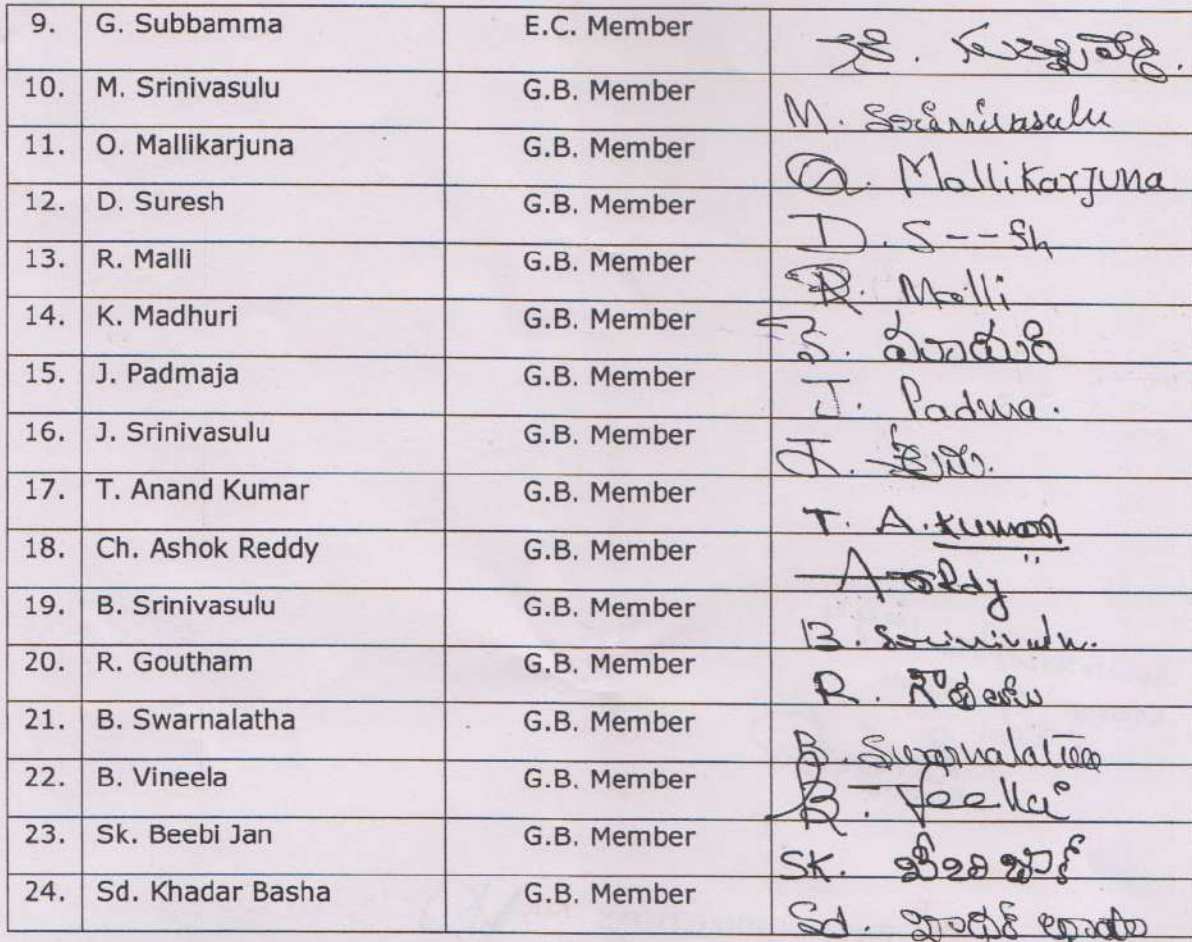 9. G. Subbamma E.C. Member
10. M. Srinivasulu G.B. Member M. Srinnivasulu
11. O. Mallikarjuna G.B. Member O. Mallikarjuna
12. D. Suresh G.B. Member D. S--sh
13. R. Malli G.B. Member R. Malli
14. K. Madhuri G.B. Member కె. మాధురి
15. J. Padmaja G.B. Member J. Padma.
16. J. Srinivasulu G.B. Member
17. T. Anand Kumar G.B. Member T. A. Kumar
18. Ch. Ashok Reddy G.B. Member A reddy
19. B. Srinivasulu G.B. Member B.
20. R. Goutham G.B. Member R. గౌతమ్
21. B. Swarnalatha G.B. Member B. Swarnalatha
22. B. Vineela G.B. Member B.
23. Sk. Beebi Jan G.B. Member SK. బీబి జాన్
24. Sd. Khadar Basha G.B. Member Sd. ఖాదర్ బాషా